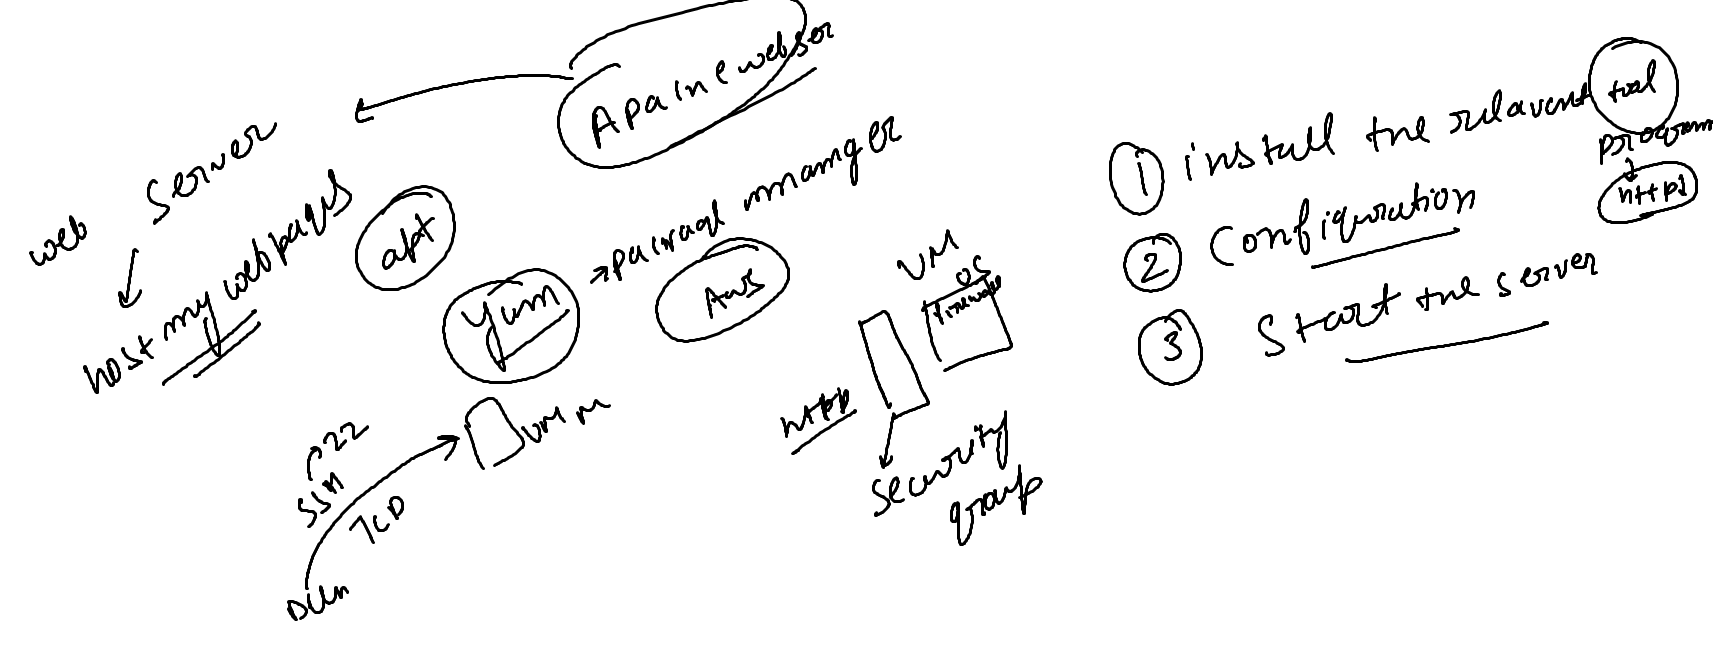 Apache webser
web server
host my webpages
apt
yum
→ package manamger
AWS
SSH
22
TCP
VM
VM
OS
firewall
http
security
group
1 install the relavent tool
program
httpd
2 Configuration
3 Start the server